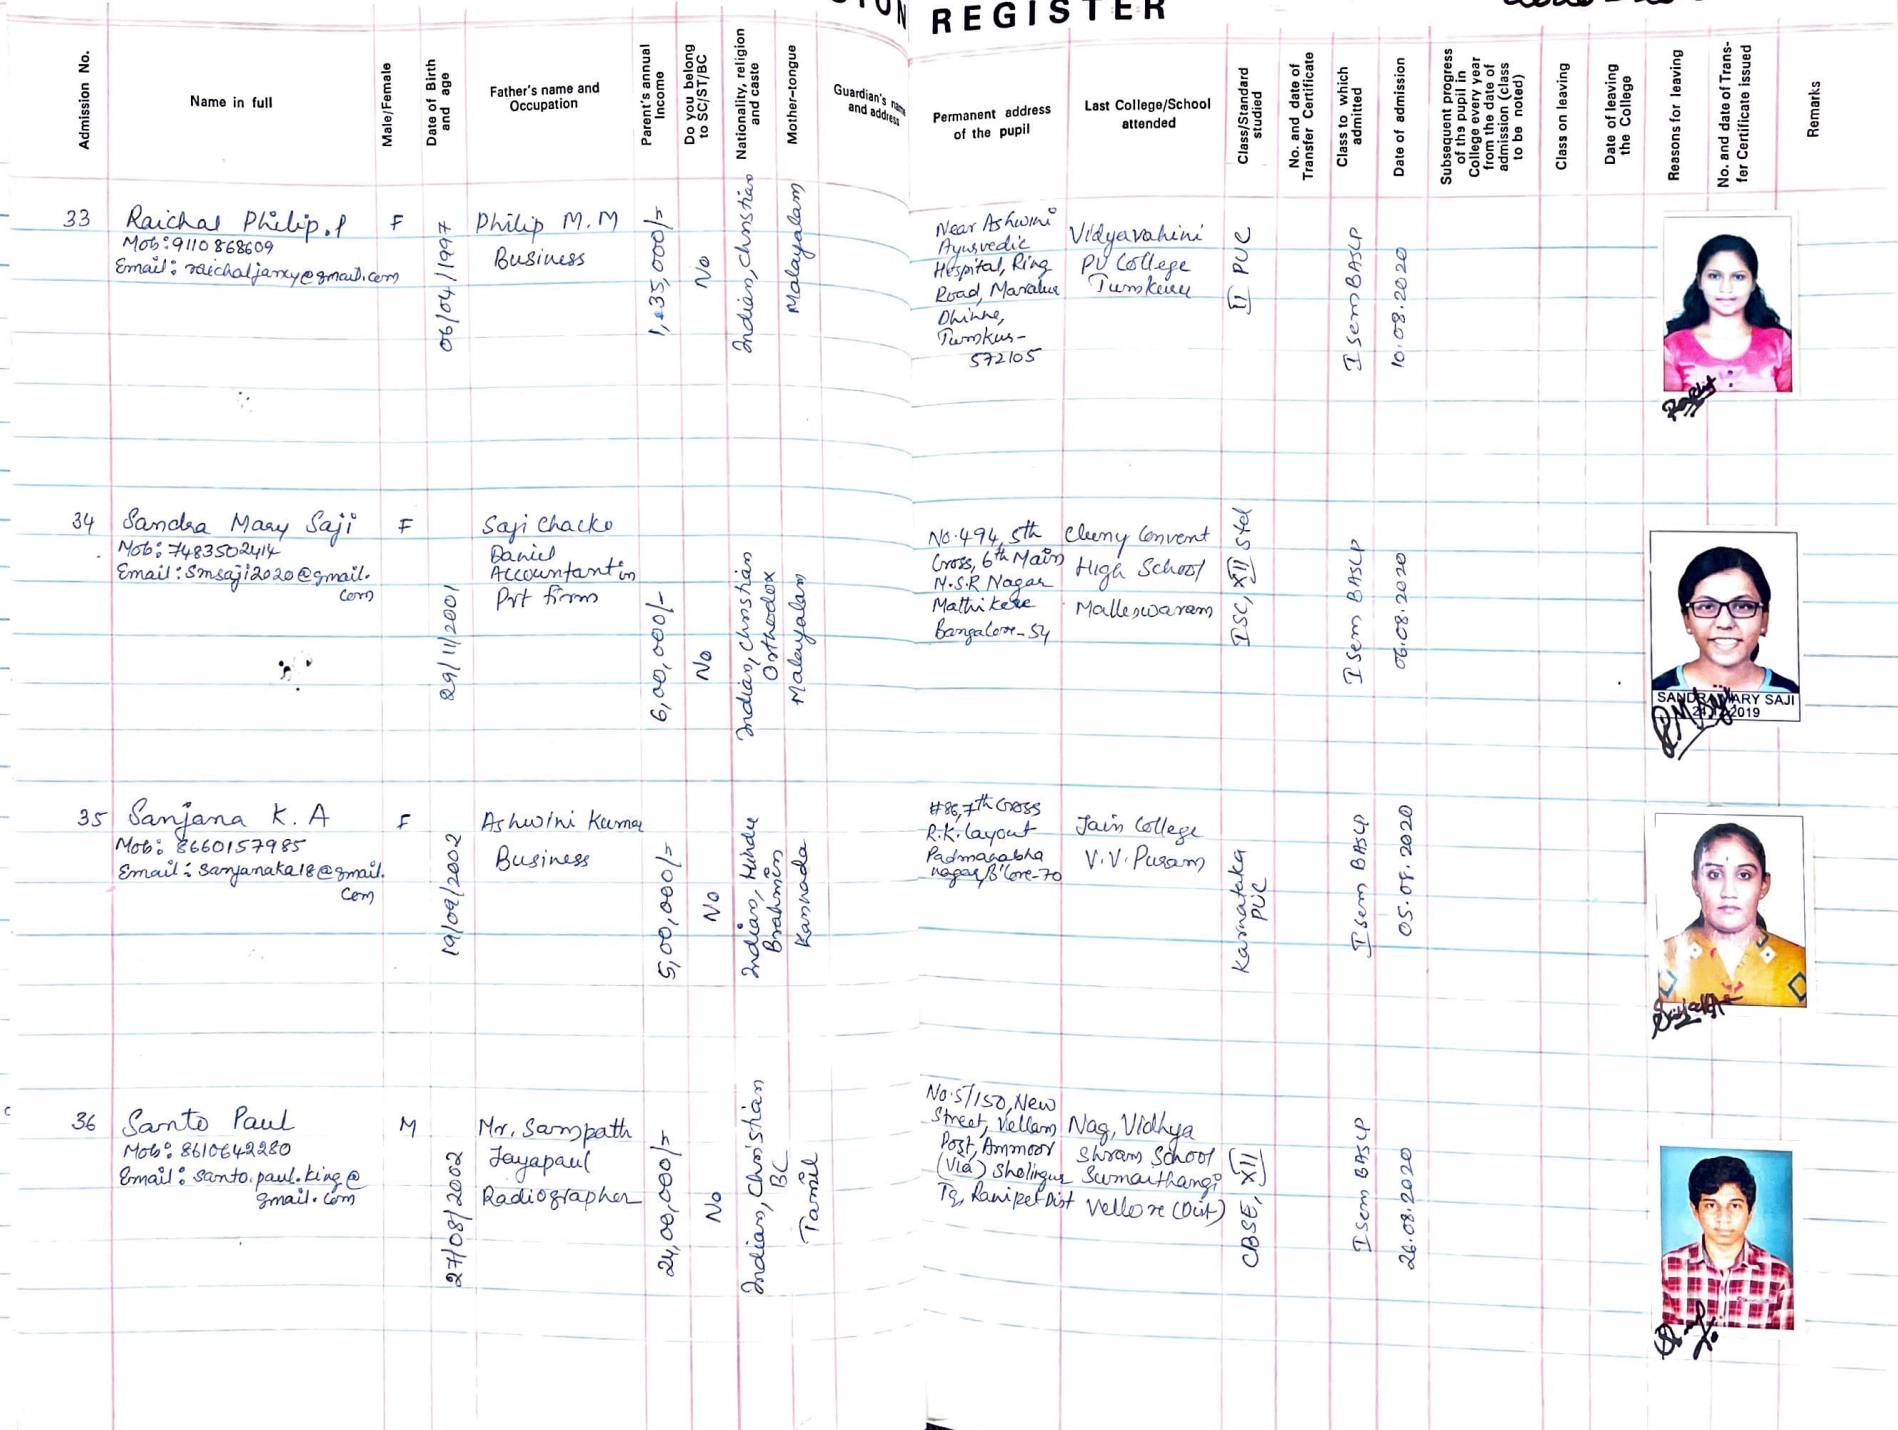 REGISTER
Admission No.
Name in full
Male/Female
Date of Birth
and age
Father's name and
Occupation
Parent's annual
Income
Do you belong
to SC/ST/BC
Nationality, religion
and caste
Mother-tongue
Guardian's name
and address
Permanent address
of the pupil
Last College/School
attended
Class/Standard
studied
No. and date of
Transfer Certificate
Class to which
admitted
Date of admission
Subsequent progress
of the pupil in
College every year
from the date of
admission (class
to be noted)
Class on leaving
Date of leaving
the College
Reasons for leaving
No. and date of Trans-
fer Certificate issued
Remarks
33
Raichal Philip.P
Mob: 9110868609
Email: raichaljanxy@gmail.com
F
06/04/1997
Philip M.M
Business
1,35,000/=
No
Indian, Christian
Malayalam
Near Ashwini
Ayurvedic
Hospital, Ring
Road, Maralur
Dhinne,
Tumkur-
572105
Vidyavahini
PU College
Tumkuru
II PUC
I sem BASLP
10.08.2020
34
Sandra Mary Saji
Mob: 7483502414
Email: Smsaji2020@gmail.
com
F
29/11/2001
Saji Chacko
Daniel
Accountant in
Pvt firm
6,00,000/-
No
Indian, Christian
Orthodox
Malayalam
No.494, 5th
Cross, 6th Main
M.S.R Nagar
Mathikere
Bangalore-54
Cluny Convent
High School
Malleswaram
ISC, XII Std
I sem BASLP
06.08.2020
SANDRA MARY SAJI
2019
35
Sanjana K. A
Mob: 8660157985
Email: Sanjanaka18@gmail.
com
F
19/09/2002
Ashwini Kumar
Business
5,00,000/=
No
Indian, Hindu
Brahmin
Kannada
#86, 7th Cross
R.K. layout
Padmanabha
nagar, B'lore-70
Jain College
V.V. Puram
Karnataka
PUC
I sem BASLP
05.08.2020
36
Santo Paul
Mob: 8610642280
Email: santo.paul.king@
gmail.com
M
27/08/2002
Mr. Sampath
Jayapaul
Radiographer
24,00,000/=
No
Indian, Christian
BC
Tamil
No.5/150, New
Street, Vellam
Post, Ammoor
(Via) Sholingur
Tq, Ranipet Dist
Nag, Vidhya
Shram School
Sumaithangi
Vellore (Dist)
CBSE, XII
I sem BASLP
26.08.2020